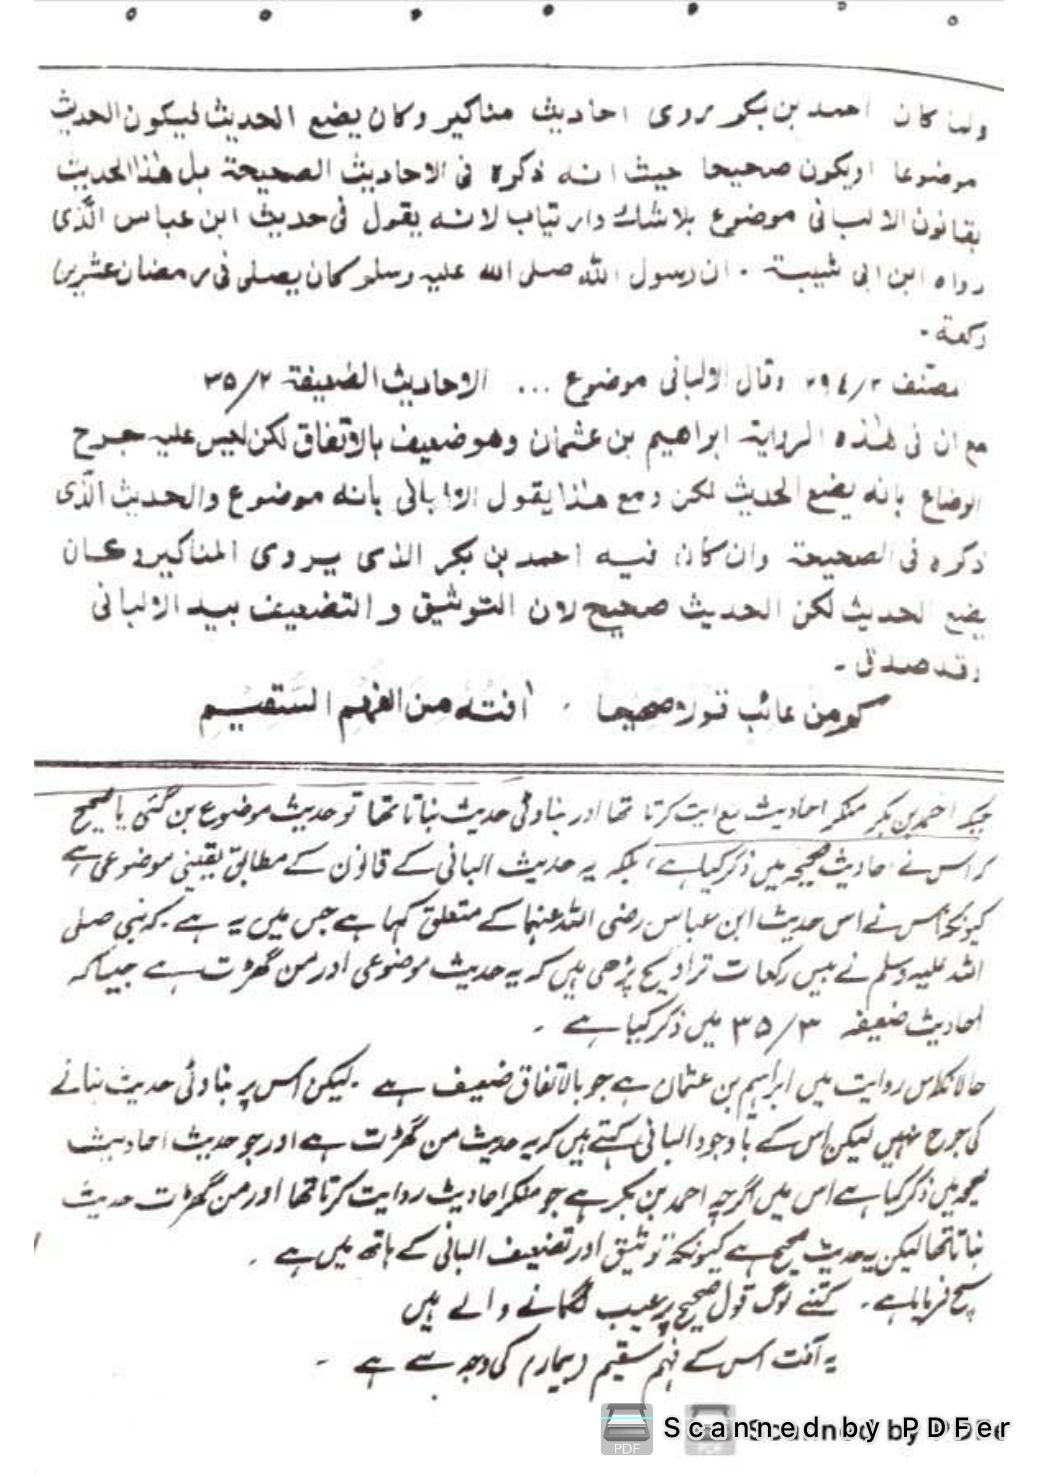 ولما كان احمد بن بكر يروى احاديث مناكير وكان يضع الحديث فيكون الحديث
موضوعا او يكون صحيحا حيث انه ذكره فى الاحاديث الصحيحة بل هذا الحديث
بقانون الالبانى موضوع بلا شك وارتياب لانه يقول فى حديث ابن عباس الذى
رواه ابن ابى شيبة . ان رسول الله صلى الله عليه وسلم كان يصلى فى رمضان عشرين
ركعة -
مصنف وقال الالبانى موضوع ... الاحاديث الضعيفة ٣٥/٢
مع ان فى هذه الرواية ابراهيم بن عثمان وهو ضعيف بالاتفاق لكن ليس عليه جرح
الوضاع بانه يضع الحديث لكن ومع هذا يقول الالبانى بانه موضوع والحديث الذى
ذكره فى الصحيحة وان كان فيه احمد بن بكر الذى يروى المناكير وكان
يضع الحديث لكن الحديث صحيح لان التوثيق والتضعيف بيد الالبانى
وقد صدق -
كم من عائب قولا صحيحا . آفته من الفهم السقيم
جبکہ احمد بن بکر منکر احادیث روایت کرتا تھا اور بناوٹی حدیث بناتا تھا تو حدیث موضوع بن گئی یا صحیح
کہ اس نے احادیث صحیحہ میں ذکر کیا ہے، بلکہ یہ حدیث البانی کے قانون کے مطابق یقینی موضوعی ہے
کیونکہ اس نے اس حدیث ابن عباس رضی اللہ عنہما کے متعلق کہا ہے جس میں یہ ہے کہ نبی صلی
اللہ علیہ وسلم نے بیس رکعات تراویح پڑھی ہیں کہ یہ حدیث موضوعی اور من گھڑت ہے جیسا کہ
احادیث ضعیفہ ٣/٣٥ میں ذکر کیا ہے ۔
حالانکہ اس روایت میں ابراہیم بن عثمان ہے جو بالاتفاق ضعیف ہے ۔ لیکن اس پر بناوٹی حدیث بنانے
کی جرح نہیں لیکن اس کے باوجود البانی کہتے ہیں کہ یہ حدیث من گھڑت ہے اور جو حدیث احادیث
صحیحہ میں ذکر کیا ہے اس میں اگرچہ احمد بن بکر ہے جو منکر احادیث روایت کرتا تھا اور من گھڑت حدیث
بناتا تھا لیکن یہ حدیث صحیح ہے کیونکہ توثیق اور تضعیف البانی کے ہاتھ میں ہے ۔
سچ فرمایا ہے ۔ کتنے لوگ قول صحیح پر عیب لگانے والے ہیں
یہ آفت اس کے فہم سقیم (بیمار) کی وجہ سے ہے ۔
Scanned by PDFer